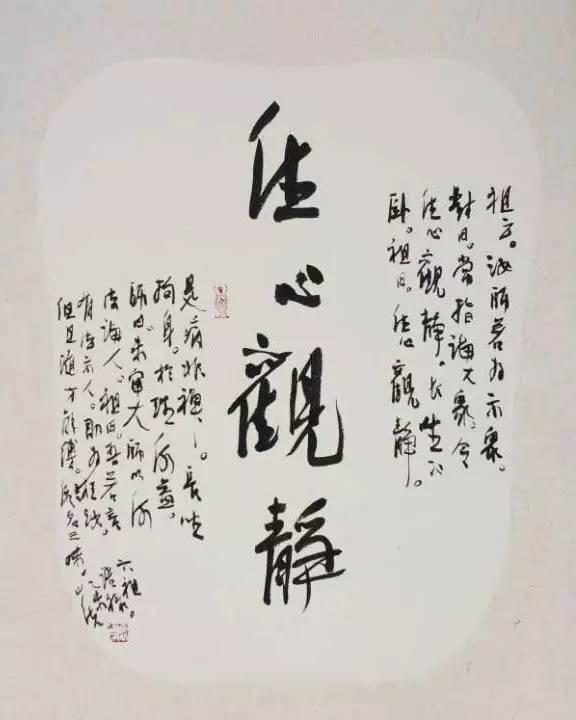 祖云。汝師若為示衆。
對曰。常指誨大衆。令
住心觀靜。長坐不
臥。祖曰。住心觀靜。
住心觀靜
是病非禪。長坐
拘身。於理何益。
師曰。未審大師以何
法誨人。祖曰。吾若言
有法示人。即為誑汝。
但且隨方解縛。假名三昧。
六祖。